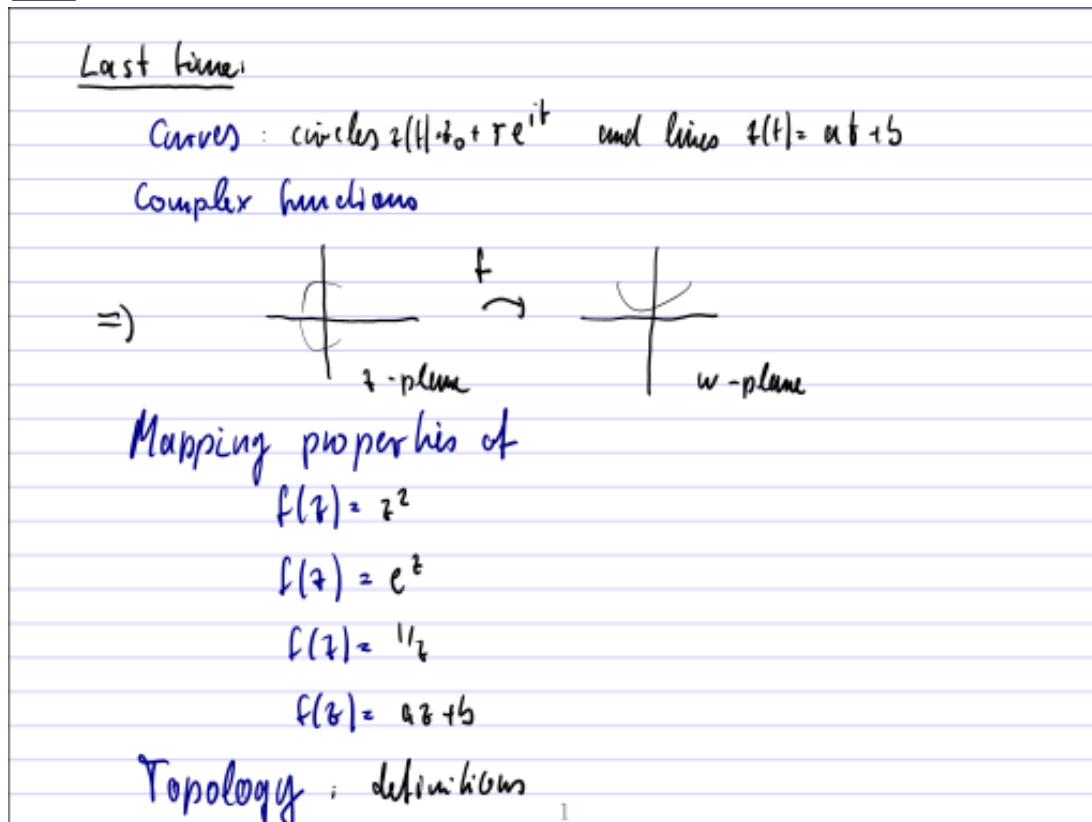 Last time:
Curves: circles z(t)=z₀+re^{it} and lines z(t)=at+b
Complex functions
f
=)
z-plane w-plane
Mapping properties of
f(z)= z²
f(z)= e^z
f(z)= 1/z
f(z)= az+b
Topology: definitions
1